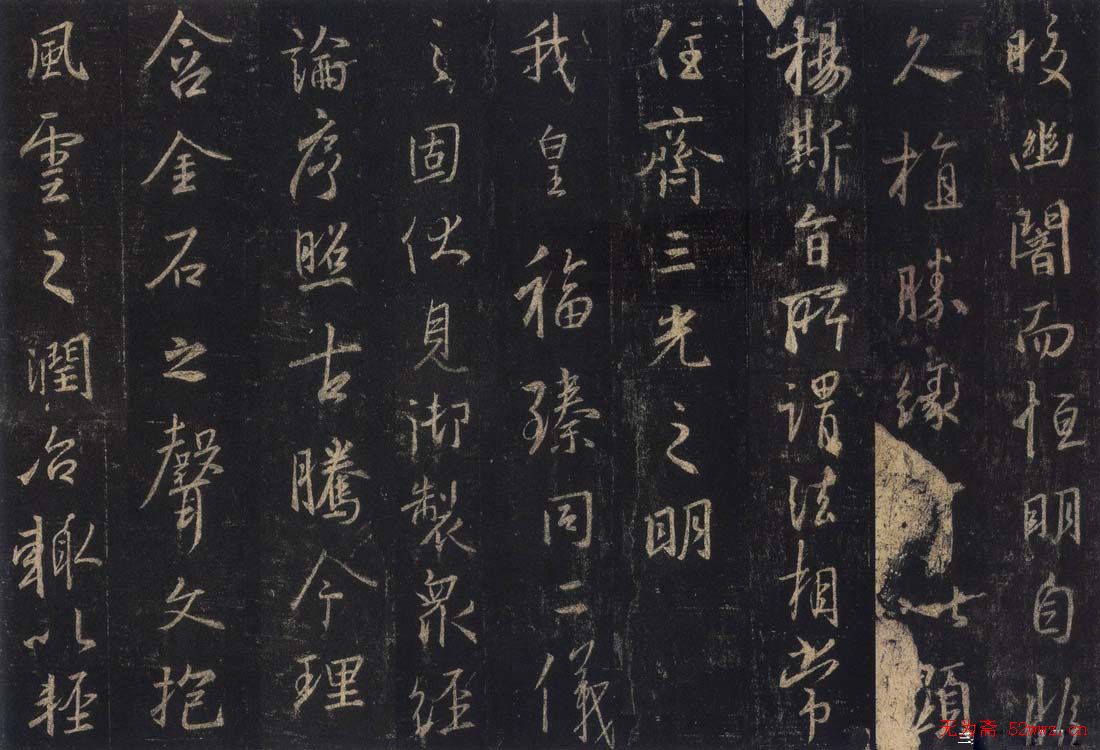 晈幽闇而恒明自非
久植勝緣何以顯
揚斯旨所謂法相常
住齊三光之明
我皇福臻同二儀
之固伏見御製衆經
論序照古騰今理
含金石之聲文抱
風雲之潤治輒以輕
无为斋 52wwz.cn